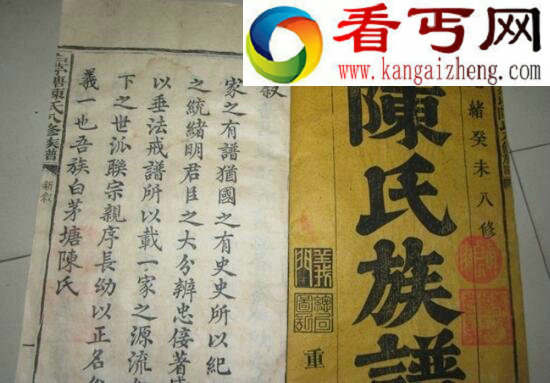 看丐网
www.kangaizheng.com
緒癸未八修
陳氏族譜
重
叙
家之有譜猶國之有史史所以紀
之統緒明君臣之大分辨忠佞著
以垂法戒譜所以載一家之源流
下之世派聯宗親序長幼以正名
義一也吾族白茅塘陳氏
茅塘陳氏八修族譜
新叙